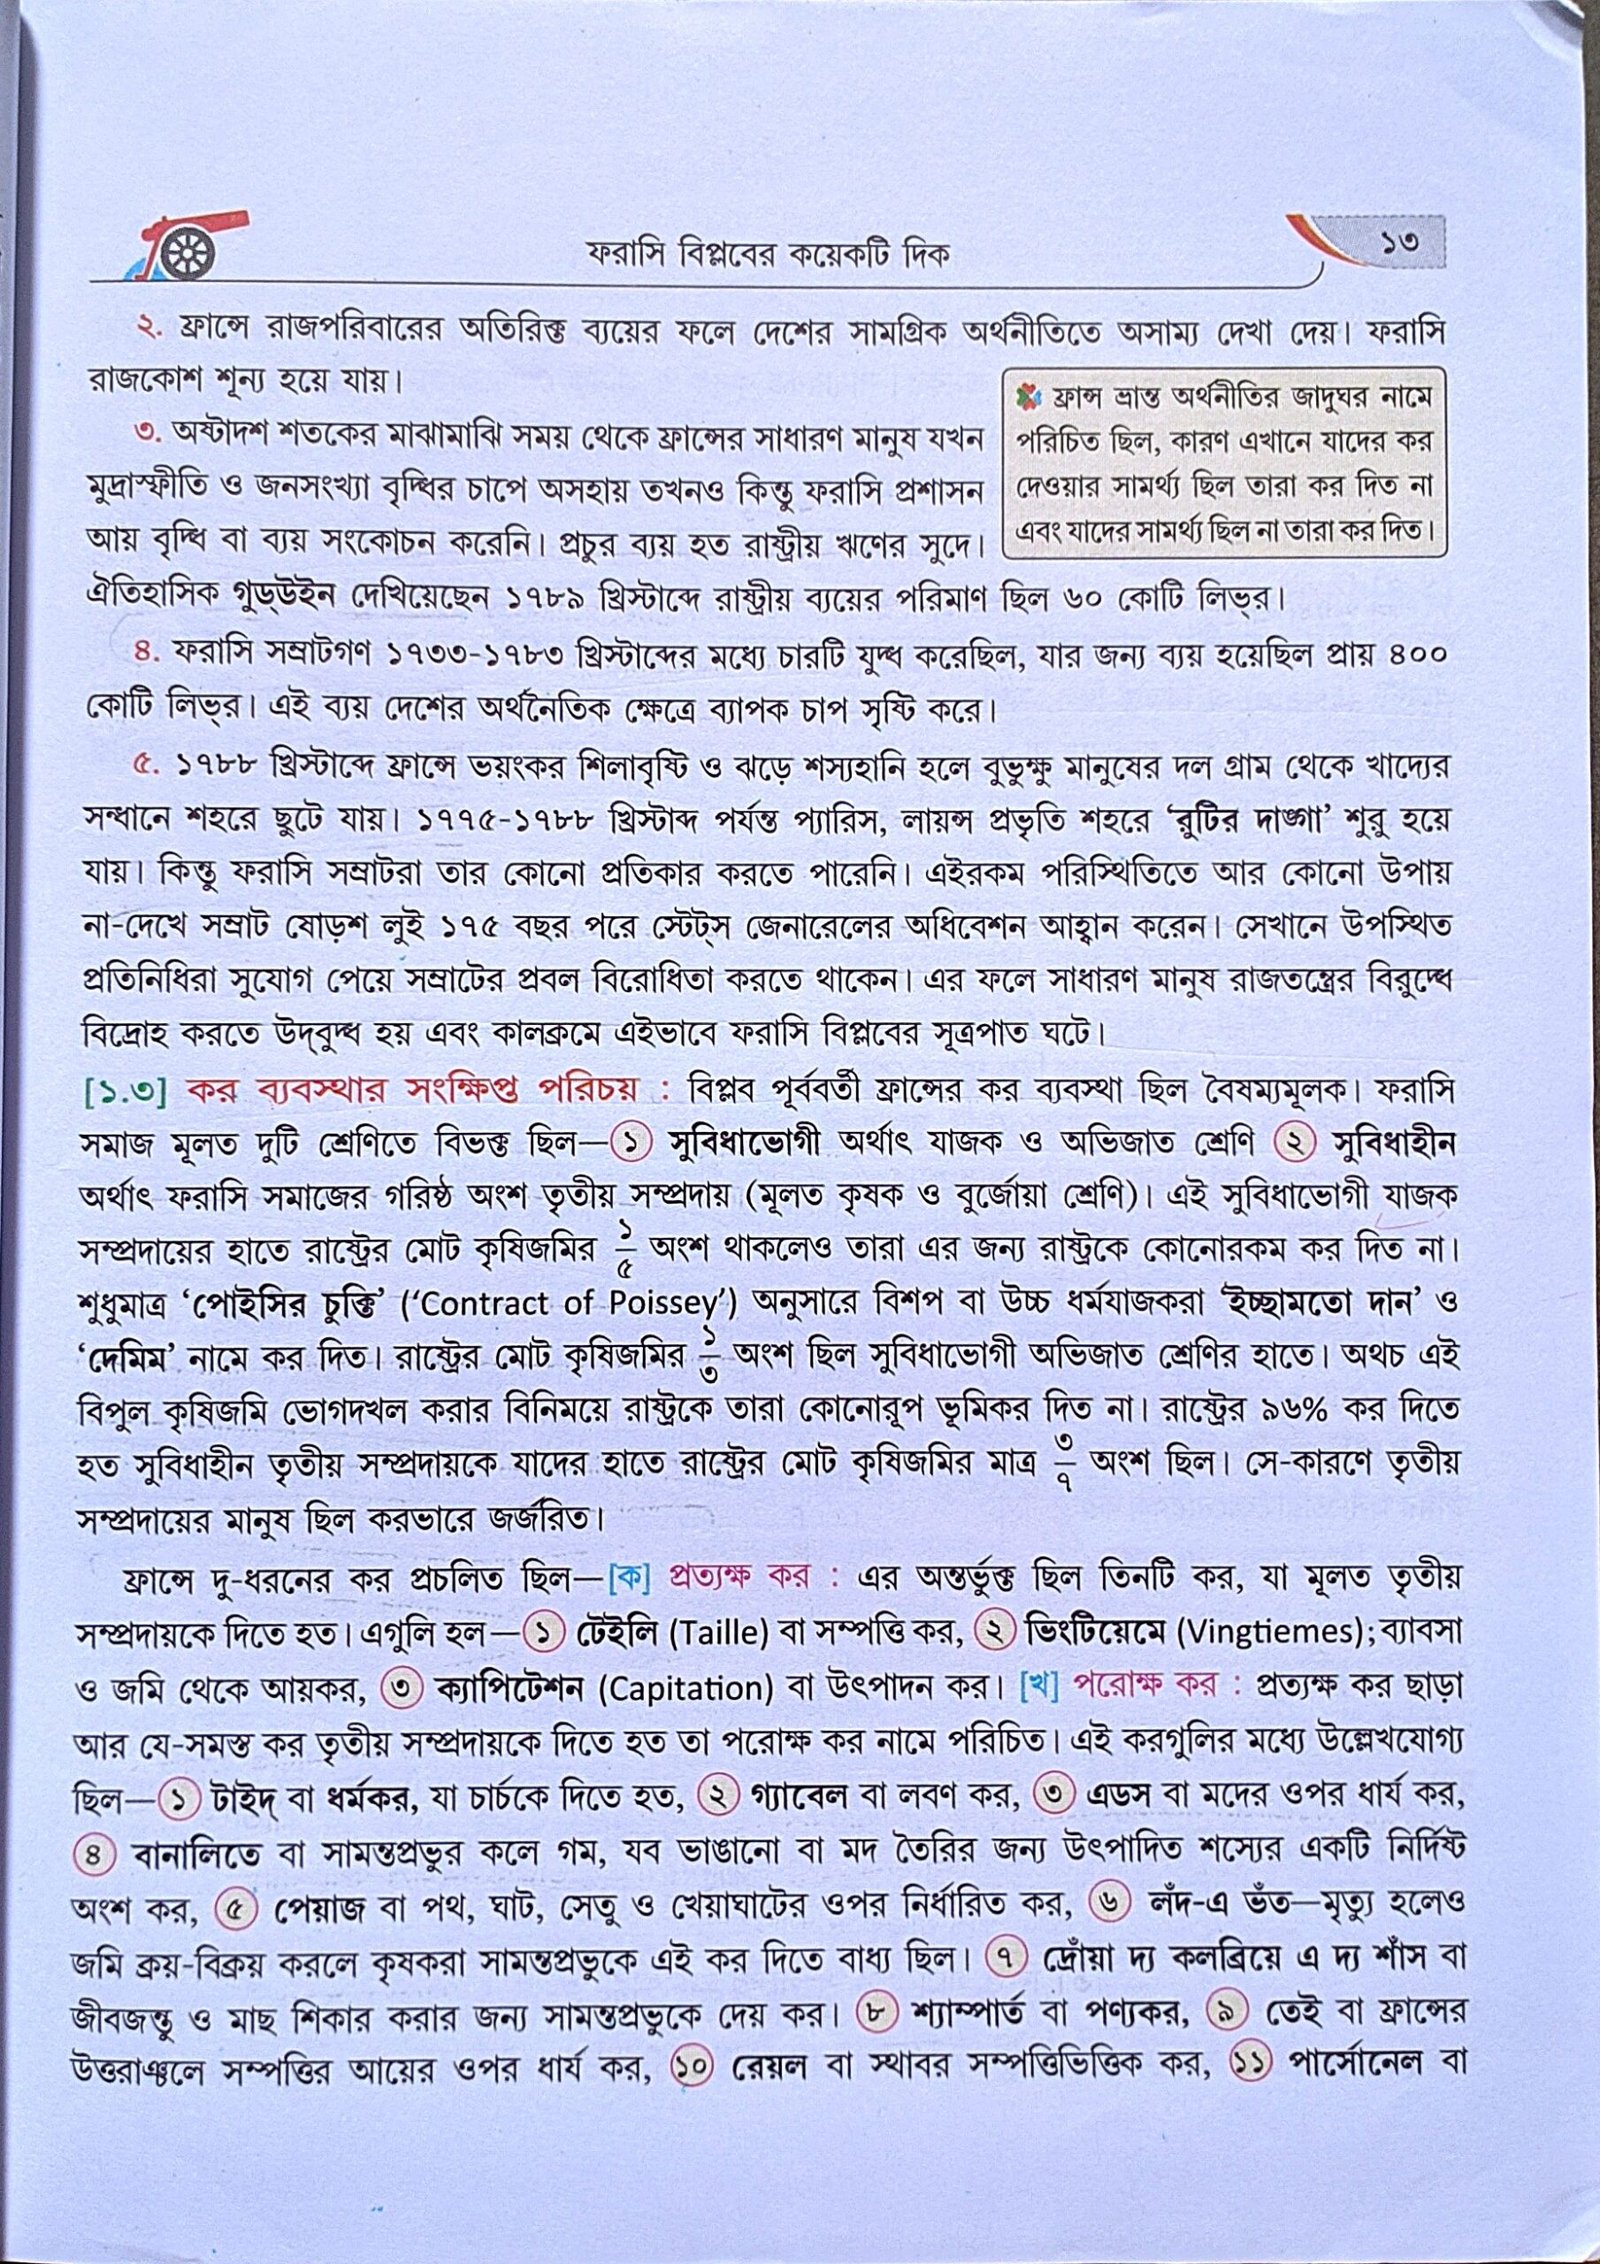 ফরাসি বিপ্লবের কয়েকটি দিক
১৩
২. ফ্রান্সে রাজপরিবারের অতিরিক্ত ব্যয়ের ফলে দেশের সামগ্রিক অর্থনীতিতে অসাম্য দেখা দেয়। ফরাসি
রাজকোশ শূন্য হয়ে যায়।
৩. অষ্টাদশ শতকের মাঝামাঝি সময় থেকে ফ্রান্সের সাধারণ মানুষ যখন
মুদ্রাস্ফীতি ও জনসংখ্যা বৃদ্ধির চাপে অসহায় তখনও কিন্তু ফরাসি প্রশাসন
আয় বৃদ্ধি বা ব্যয় সংকোচন করেনি। প্রচুর ব্যয় হত রাষ্ট্রীয় ঋণের সুদে।
ফ্রান্স ভ্রান্ত অর্থনীতির জাদুঘর নামে
পরিচিত ছিল, কারণ এখানে যাদের কর
দেওয়ার সামর্থ্য ছিল তারা কর দিত না
এবং যাদের সামর্থ্য ছিল না তারা কর দিত।
ঐতিহাসিক গুড্‌উইন দেখিয়েছেন ১৭৮৯ খ্রিস্টাব্দে রাষ্ট্রীয় ব্যয়ের পরিমাণ ছিল ৬০ কোটি লিভ্‌র।
৪. ফরাসি সম্রাটগণ ১৭৩৩-১৭৮৩ খ্রিস্টাব্দের মধ্যে চারটি যুদ্ধ করেছিল, যার জন্য ব্যয় হয়েছিল প্রায় ৪০০
কোটি লিভ্‌র। এই ব্যয় দেশের অর্থনৈতিক ক্ষেত্রে ব্যাপক চাপ সৃষ্টি করে।
৫. ১৭৮৮ খ্রিস্টাব্দে ফ্রান্সে ভয়ংকর শিলাবৃষ্টি ও ঝড়ে শস্যহানি হলে বুভুক্ষু মানুষের দল গ্রাম থেকে খাদ্যের
সন্ধানে শহরে ছুটে যায়। ১৭৭৫-১৭৮৮ খ্রিস্টাব্দ পর্যন্ত প্যারিস, লায়ন্স প্রভৃতি শহরে ‘রুটির দাঙ্গা’ শুরু হয়ে
যায়। কিন্তু ফরাসি সম্রাটরা তার কোনো প্রতিকার করতে পারেনি। এইরকম পরিস্থিতিতে আর কোনো উপায়
না-দেখে সম্রাট ষোড়শ লুই ১৭৫ বছর পরে স্টেট্‌স জেনারেলের অধিবেশন আহ্বান করেন। সেখানে উপস্থিত
প্রতিনিধিরা সুযোগ পেয়ে সম্রাটের প্রবল বিরোধিতা করতে থাকেন। এর ফলে সাধারণ মানুষ রাজতন্ত্রের বিরুদ্ধে
বিদ্রোহ করতে উদ্‌বুদ্ধ হয় এবং কালক্রমে এইভাবে ফরাসি বিপ্লবের সূত্রপাত ঘটে।
[১.৩] কর ব্যবস্থার সংক্ষিপ্ত পরিচয় : বিপ্লব পূর্ববর্তী ফ্রান্সের কর ব্যবস্থা ছিল বৈষম্যমূলক। ফরাসি
সমাজ মূলত দুটি শ্রেণিতে বিভক্ত ছিল—১ সুবিধাভোগী অর্থাৎ যাজক ও অভিজাত শ্রেণি ২ সুবিধাহীন
অর্থাৎ ফরাসি সমাজের গরিষ্ঠ অংশ তৃতীয় সম্প্রদায় (মূলত কৃষক ও বুর্জোয়া শ্রেণি)। এই সুবিধাভোগী যাজক
সম্প্রদায়ের হাতে রাষ্ট্রের মোট কৃষিজমির ১/৫ অংশ থাকলেও তারা এর জন্য রাষ্ট্রকে কোনোরকম কর দিত না।
শুধুমাত্র ‘পোইসির চুক্তি’ (‘Contract of Poissey’) অনুসারে বিশপ বা উচ্চ ধর্মযাজকরা ‘ইচ্ছামতো দান’ ও
‘দেমিম’ নামে কর দিত। রাষ্ট্রের মোট কৃষিজমির ১/৩ অংশ ছিল সুবিধাভোগী অভিজাত শ্রেণির হাতে। অথচ এই
বিপুল কৃষিজমি ভোগদখল করার বিনিময়ে রাষ্ট্রকে তারা কোনোরূপ ভূমিকর দিত না। রাষ্ট্রের ৯৬% কর দিতে
হত সুবিধাহীন তৃতীয় সম্প্রদায়কে যাদের হাতে রাষ্ট্রের মোট কৃষিজমির মাত্র ৩/৭ অংশ ছিল। সে-কারণে তৃতীয়
সম্প্রদায়ের মানুষ ছিল করভারে জর্জরিত।
ফ্রান্সে দু-ধরনের কর প্রচলিত ছিল—[ক] প্রত্যক্ষ কর : এর অন্তর্ভুক্ত ছিল তিনটি কর, যা মূলত তৃতীয়
সম্প্রদায়কে দিতে হত। এগুলি হল—১ টেইলি (Taille) বা সম্পত্তি কর, ২ ভিংটিয়েমে (Vingtiemes); ব্যাবসা
ও জমি থেকে আয়কর, ৩ ক্যাপিটেশন (Capitation) বা উৎপাদন কর। [খ] পরোক্ষ কর : প্রত্যক্ষ কর ছাড়া
আর যে-সমস্ত কর তৃতীয় সম্প্রদায়কে দিতে হত তা পরোক্ষ কর নামে পরিচিত। এই করগুলির মধ্যে উল্লেখযোগ্য
ছিল—১ টাইদ্‌ বা ধর্মকর, যা চার্চকে দিতে হত, ২ গ্যাবেল বা লবণ কর, ৩ এডস বা মদের ওপর ধার্য কর,
৪ বানালিতে বা সামন্তপ্রভুর কলে গম, যব ভাঙানো বা মদ তৈরির জন্য উৎপাদিত শস্যের একটি নির্দিষ্ট
অংশ কর, ৫ পেয়াজ বা পথ, ঘাট, সেতু ও খেয়াঘাটের ওপর নির্ধারিত কর, ৬ লঁদ-এ ভঁত—মৃত্যু হলেও
জমি ক্রয়-বিক্রয় করলে কৃষকরা সামন্তপ্রভুকে এই কর দিতে বাধ্য ছিল। ৭ দ্রোঁয়া দ্য কলব্রিয়ে এ দ্য শাঁস বা
জীবজন্তু ও মাছ শিকার করার জন্য সামন্তপ্রভুকে দেয় কর। ৮ শ্যাম্পার্ত বা পণ্যকর, ৯ তেই বা ফ্রান্সের
উত্তরাঞ্চলে সম্পত্তির আয়ের ওপর ধার্য কর, ১০ রেয়ল বা স্থাবর সম্পত্তিভিত্তিক কর, ১১ পার্সোনেল বা